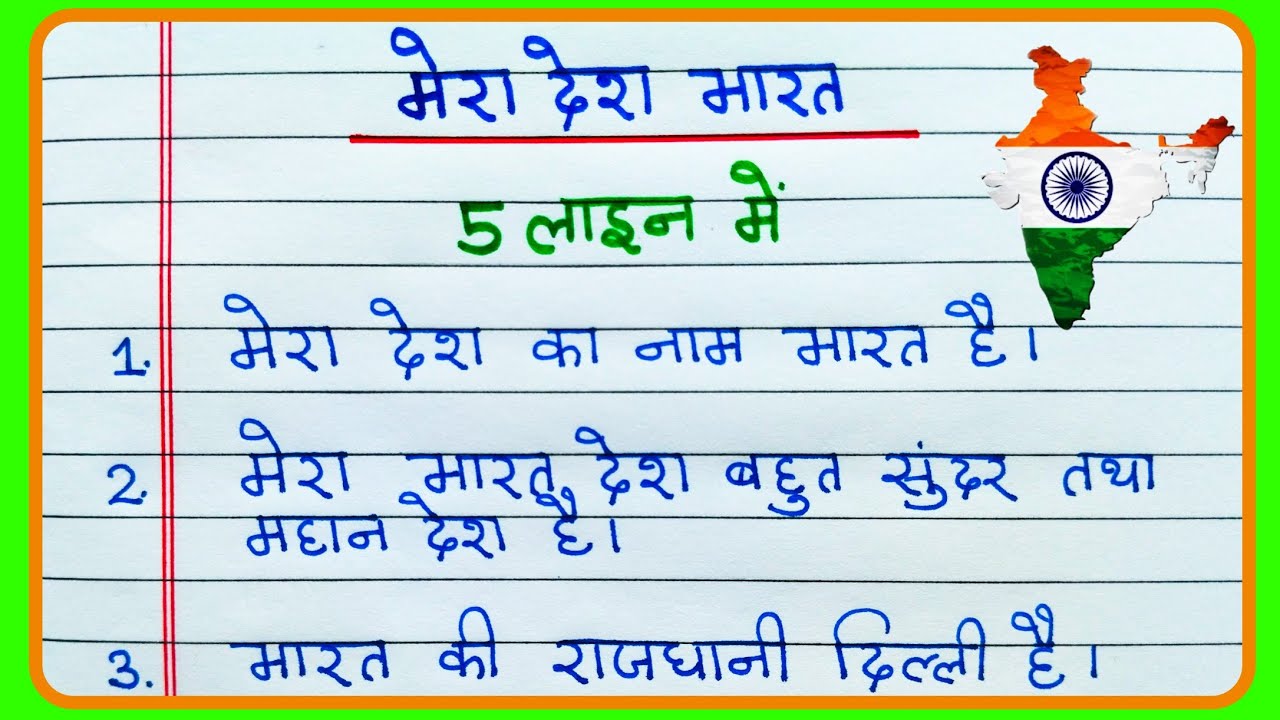 मेरा देश भारत
5 लाइन में
1. मेरा देश का नाम भारत है।
2. मेरा भारत देश बहुत सुंदर तथा
महान देश है।
3. भारत की राजधानी दिल्ली है।